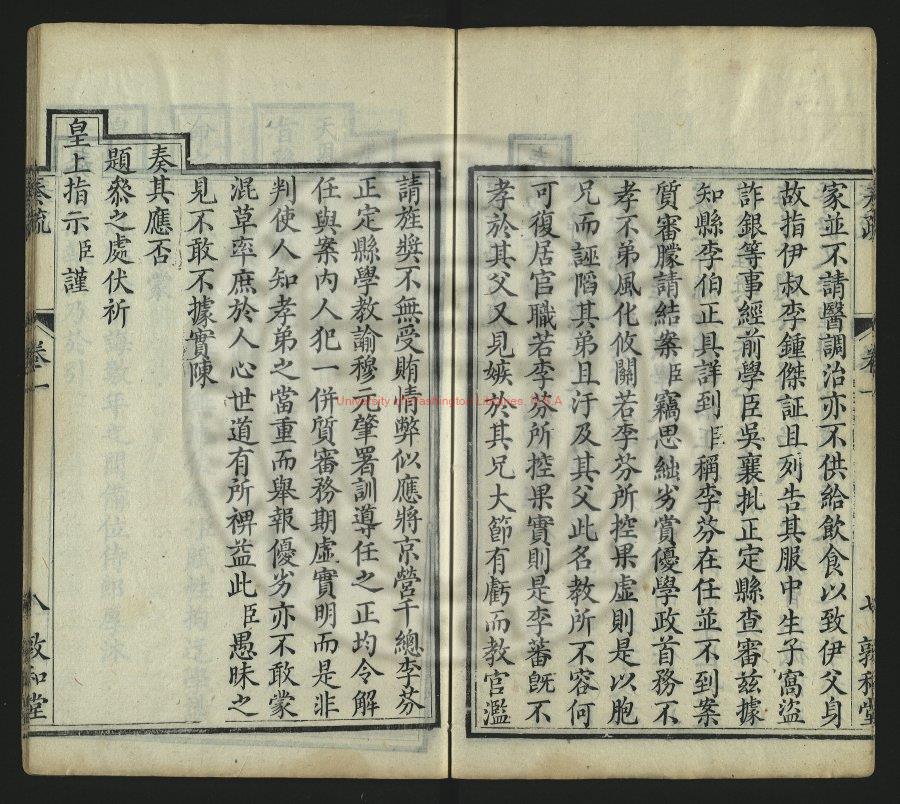 家並不請醫調治亦不供給飲食以致伊父身
故指伊叔李鍾傑証且列告其服中生子窩盜
詐銀等事經前學臣吳襄批正定縣查審茲據
知縣李伯正具詳到臣稱李芬在任並不到案
質審朦請結案臣竊思絀劣賞優學政首務不
孝不弟風化攸關若李芬所控果虛則是以胞
兄而誣陷其弟且汙及其父此名教所不容何
可復居官職若李芬所控果實則是李蕃旣不
孝於其父又見嫉於其兄大節有虧而教官濫
請旌奬不無受賄情弊似應將京營千總李芬
正定縣學教諭穆元肇署訓導任之正均令解
任與案內人犯一併質審務期虛實明而是非
判使人知孝弟之當重而舉報優劣亦不敢蒙
混草率庶於人心世道有所裨益此臣愚昧之
見不敢不據實陳
奏其應否
題叅之處伏祈
皇上指示臣謹
奏疏
卷一
八
敦和堂
University of Washington Libraries, U.S.A
奏疏
卷一
七
敦和堂